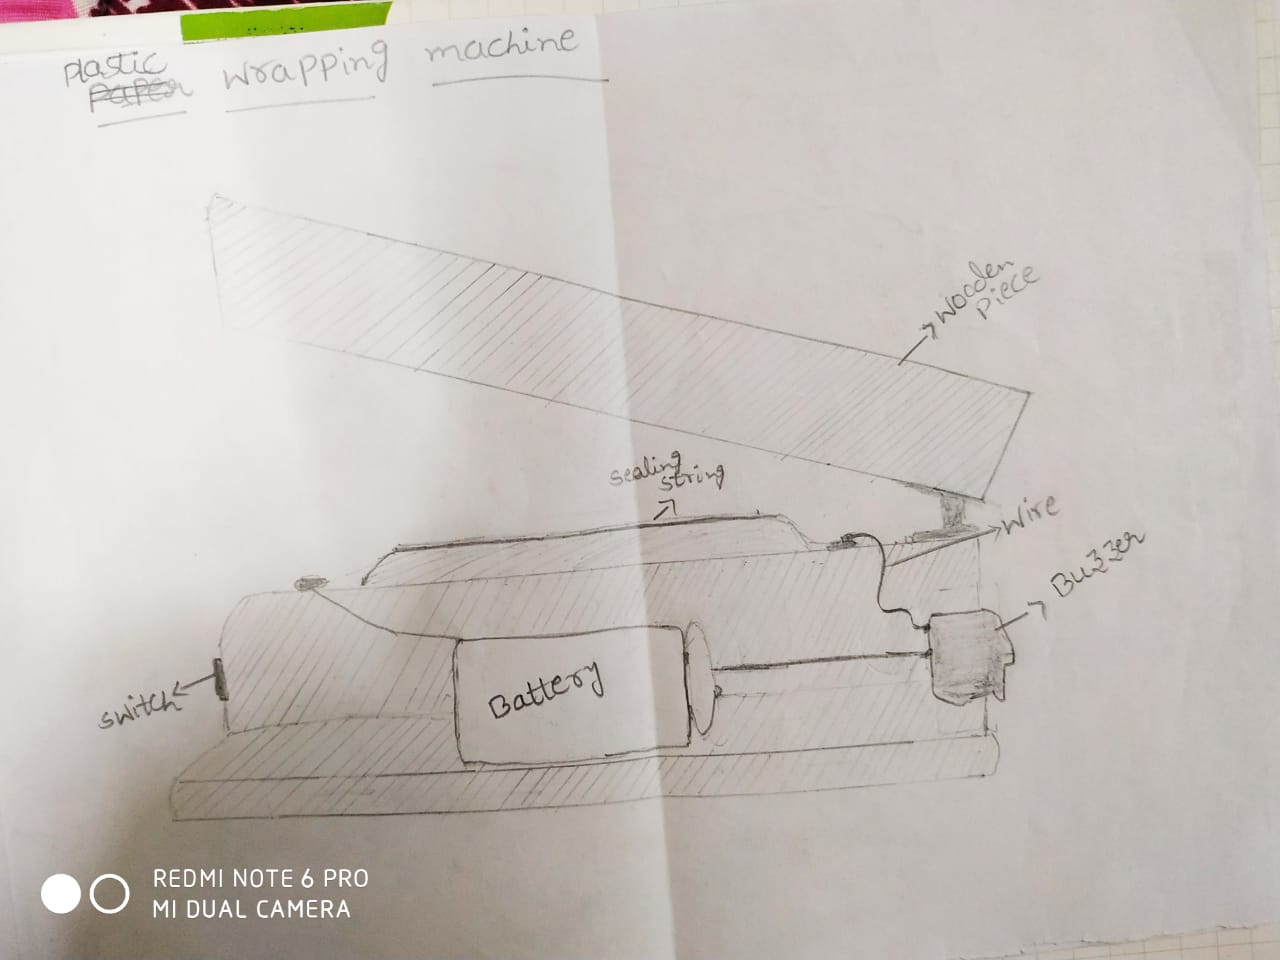 Plastic
Paper wrapping machine
wooden
piece
sealing
string
wire
Buzzer
Battery
switch
REDMI NOTE 6 PRO
MI DUAL CAMERA